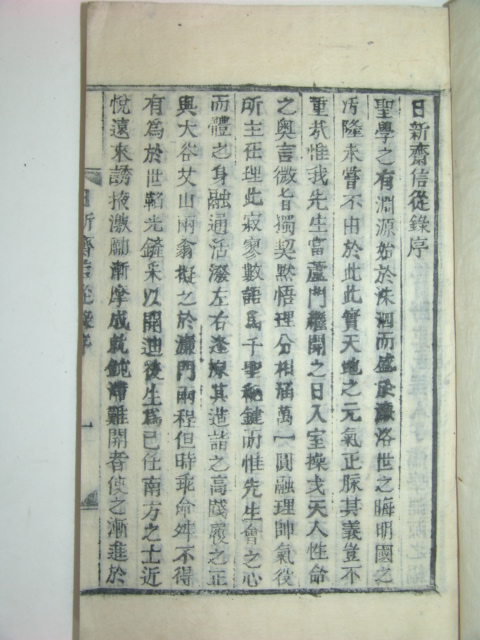 日新齋信從錄序
聖學之有淵源始於洙泗而盛於濂洛世之晦明國之
汚隆未嘗不由於此此實天地之元氣正脈其義豈不
重哉惟我先生當蘆門繼開之日入室操戈天人性命
之奧言微旨獨契默悟理分相涵萬一圓融理帥氣役
所主在理此寂寥數語爲千聖秘鍵而惟先生會之心
而體之身融通活潑左右逢原其造詣之高踐履之正
與大谷艾山兩翁擬之於濂門兩程但時乖命舛不得
有爲於世韜光鏟采以開迪後生爲己任南方之士近
悅遠來誘掖激勵漸摩成就鈍滯難開者使之漸進於
日新齋信從錄序
一